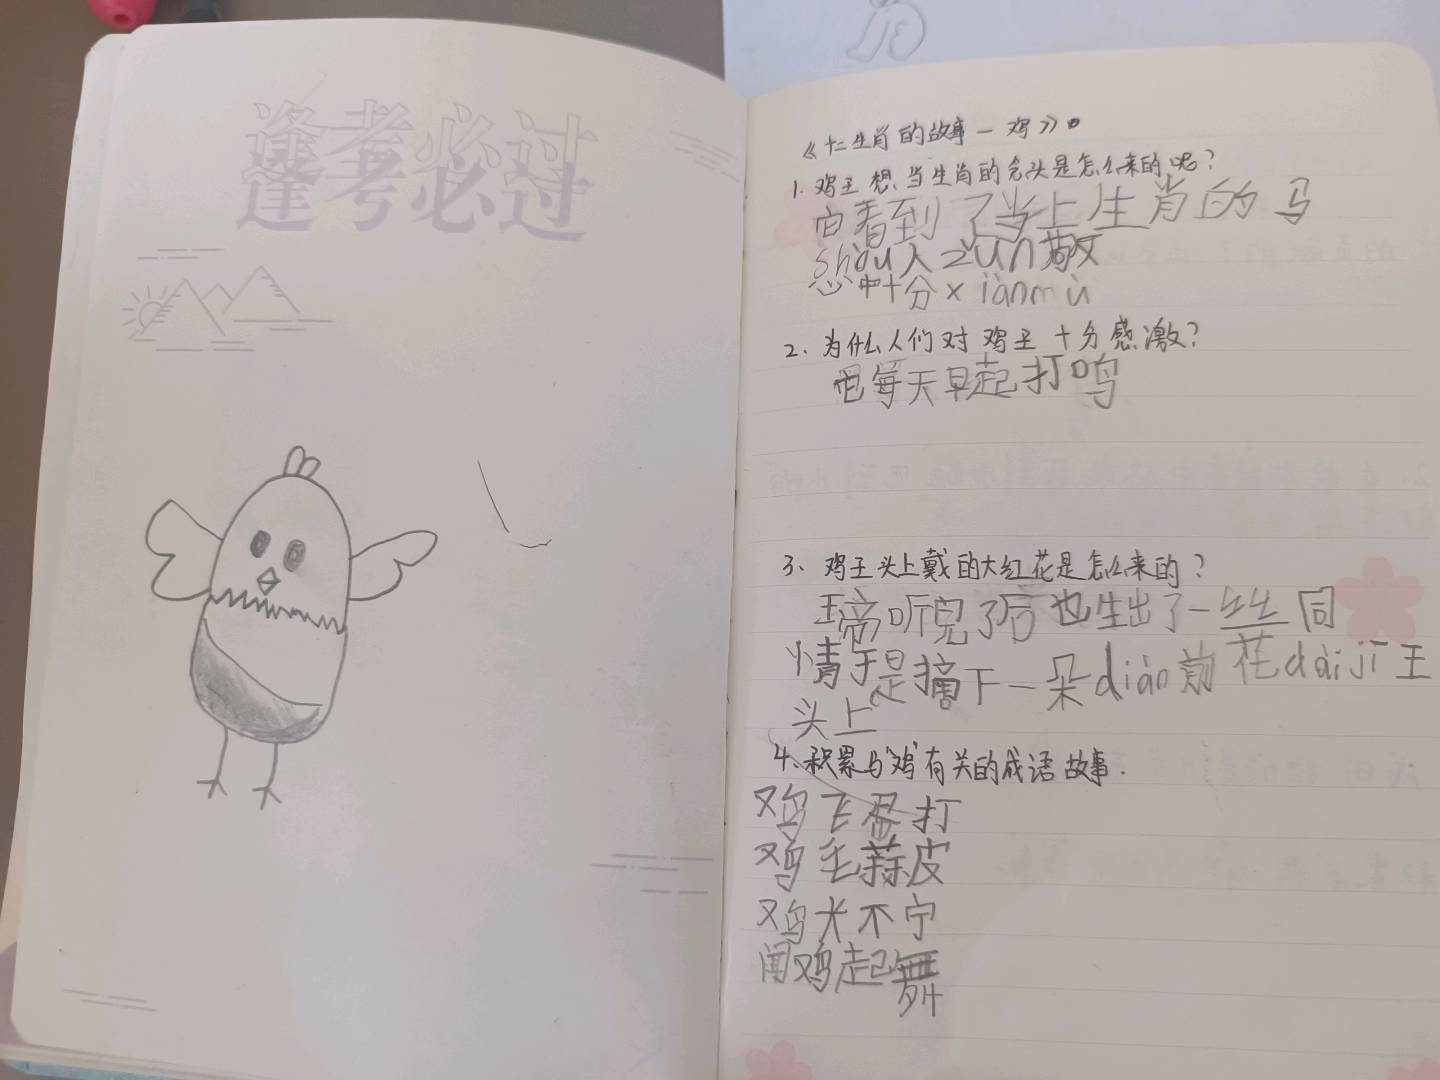 逢考必过
逢考必过
《十二生肖的故事—鸡》
1、鸡王想当生肖的念头是怎么来的呢？
它看到了当上生肖的马
shòu人zūn敬
心中十分xiànmù
2、为什么人们对鸡王十分感激？
每天早起打鸣
3、鸡王头上戴的大红花是怎么来的？
帝听完了后也生出了一丝丝同
情于是摘下一朵diàn前花dàijī王
头上
4、积累与"鸡"有关的成语故事.
鸡飞蛋打
鸡毛蒜皮
鸡犬不宁
闻鸡起舞